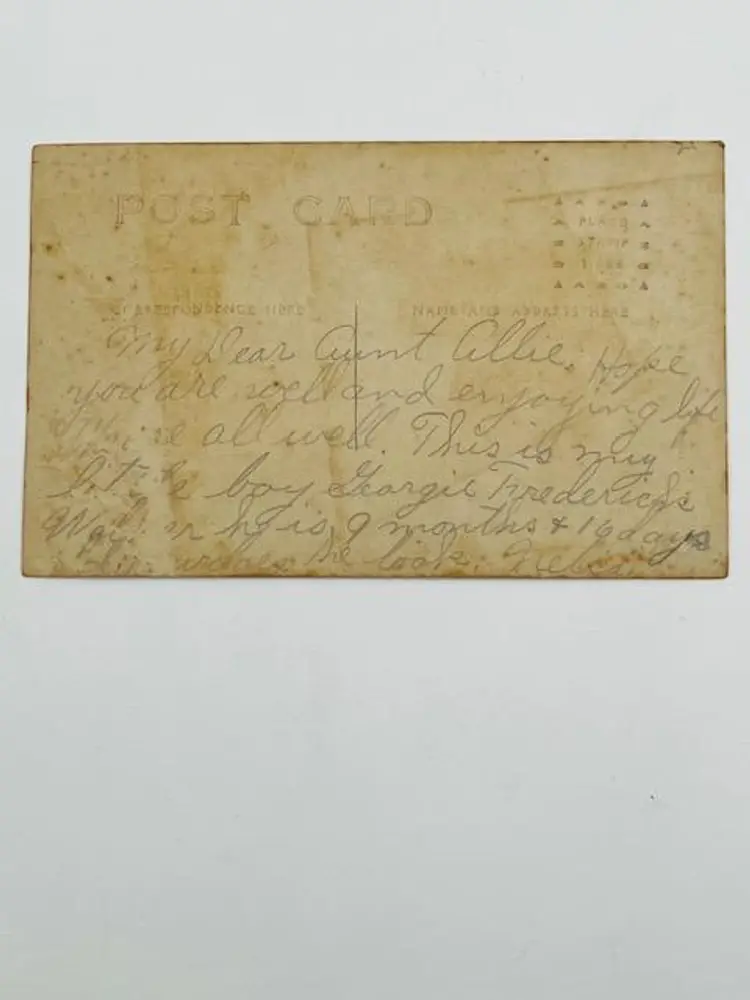 POST CARD
PLACE
STAMP
HERE
CORRESPONDENCE HERE
NAME AND ADDRESS HERE
My Dear Aunt Allie. Hope
you are well and enjoying life
all well. This is my
little boy Georgie Frederick
he is 9 months & 16 days
he look.